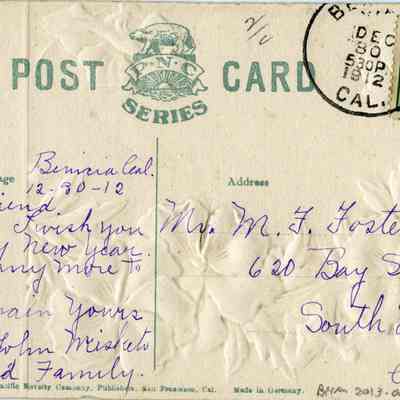 2/0
POST CARD
P.N.C.
SERIES
DEC
30
530P
1912
CAL.
age
Address
Benicia Cal.
12-30-12
riend
I wish you
y New Year.
any more to
ain Yours
John
d Family.
Mr. M. F. Foste
620 Bay S
South
acific Novelty Company, Publishers, San Francisco, Cal.
Made in Germany.
2013-0